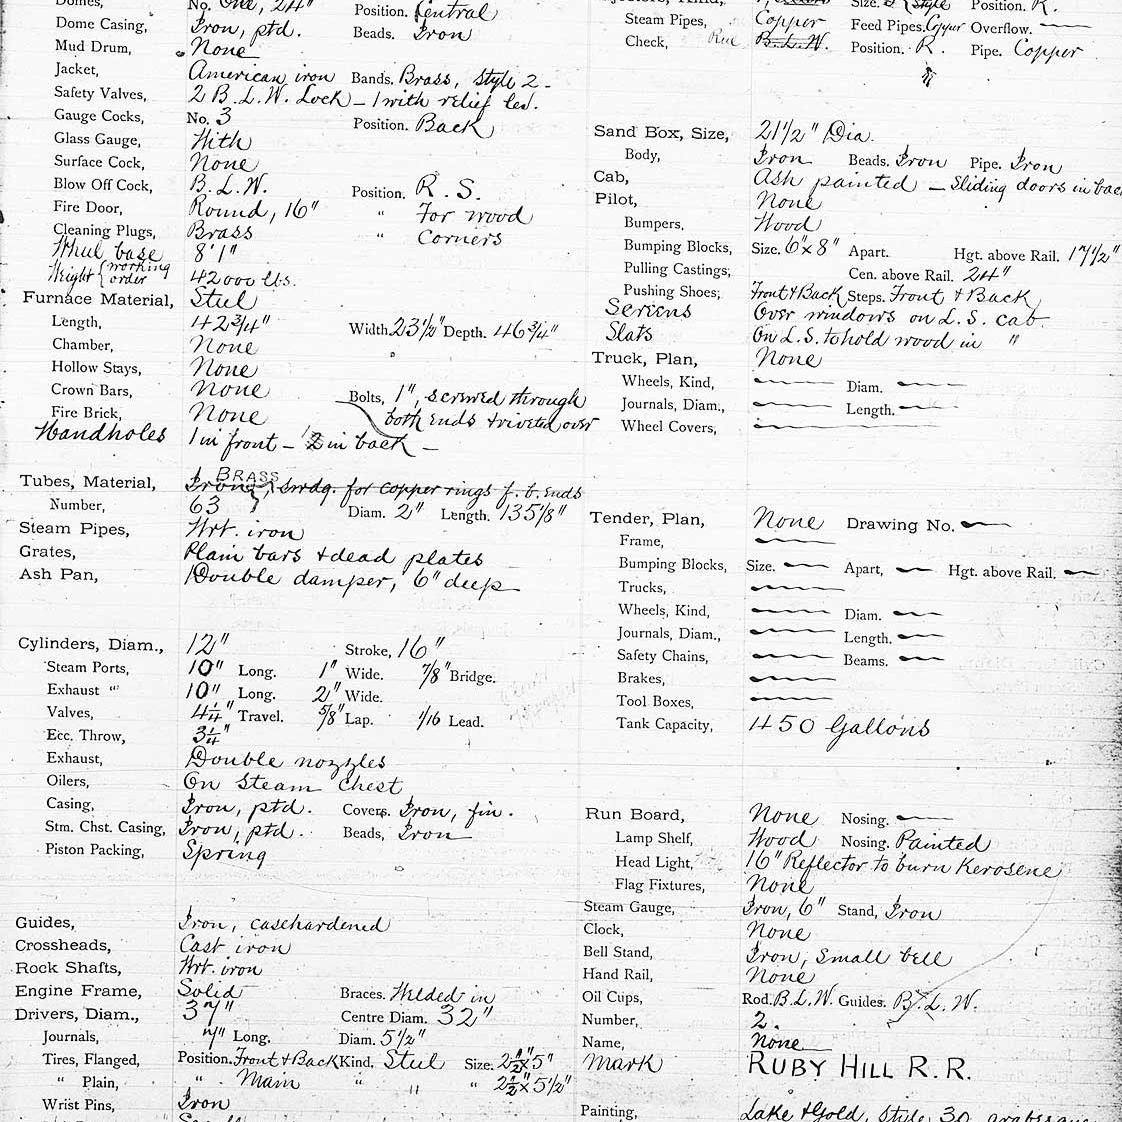 Domes, No. One, 24" Position. Central
Dome Casing, Iron, ptd. Beads. Iron
Mud Drum, None
Jacket, American iron Bands. Brass, Style 2.
Safety Valves, 2 B.L.W. Lock – 1 with relief lev.
Gauge Cocks, No. 3 Position. Back
Glass Gauge, With
Surface Cock, None
Blow Off Cock, B.L.W. Position. R.S.
Fire Door, Round, 16" " For wood
Cleaning Plugs, Brass " Corners
Wheel base 8' 1"
Weight { working order 42000 lbs.
Furnace Material, Steel
Length, 42 3/4" Width. 23 1/2" Depth. 46 3/4"
Chamber, None
Hollow Stays, None
Crown Bars, None Bolts, 1", screwed through
Fire Brick, None both ends & riveted over
Handholes 1 in front – 2 in back –
Tubes, Material, Iron, BRASS swdg. for copper rings f. b. ends
Number, 63 Diam. 2" Length. 135 1/8"
Steam Pipes, Wrt. iron
Grates, Plain bars & dead plates
Ash Pan, Double damper, 6" deep
Cylinders, Diam., 12" Stroke, 16"
Steam Ports, 10" Long. 1" Wide. 7/8" Bridge.
Exhaust " 10" Long. 2" Wide.
Valves, 4 1/4" Travel. 5/8" Lap. 1/16 Lead.
Ecc. Throw, 3 1/4"
Exhaust, Double nozzles
Oilers, On Steam Chest
Casing, Iron, ptd. Covers. Iron, fin.
Stm. Chst. Casing, Iron, ptd. Beads, Iron
Piston Packing, Spring
Guides, Iron, casehardened
Crossheads, Cast iron
Rock Shafts, Wrt. iron
Engine Frame, Solid Braces. Welded in
Drivers, Diam., 37" Centre Diam. 32"
Journals, 7" Long. Diam. 5 1/2"
Tires, Flanged, Position. Front & Back Kind. Steel Size. 2 1/2" x 5"
" Plain, " Main " " " 2 1/2" x 5 1/2"
Wrist Pins, Iron
Size. Style Position. R.
Steam Pipes, Copper Feed Pipes. Copper Overflow.
Check, B.L.W. Position. R. Pipe. Copper
Sand Box, Size, 21 1/2" Dia.
Body, Iron Beads. Iron Pipe. Iron
Cab, Ash painted – Sliding doors in bac
Pilot, None
Bumpers, Wood
Bumping Blocks, Size. 6" x 8" Apart. Hgt. above Rail. 17 1/2"
Pulling Castings, Cen. above Rail. 24"
Pushing Shoes, Front & Back Steps. Front & Back
Screens Over windows on L.S. cab.
Slats On L.S. to hold wood in "
Truck, Plan, None
Wheels, Kind, Diam.
Journals, Diam., Length.
Wheel Covers,
Tender, Plan, None Drawing No.
Frame,
Bumping Blocks, Size. Apart, Hgt. above Rail.
Trucks,
Wheels, Kind, Diam.
Journals, Diam., Length.
Safety Chains, Beams.
Brakes,
Tool Boxes,
Tank Capacity, 450 Gallons
Run Board, None Nosing.
Lamp Shelf, Wood Nosing. Painted
Head Light, 16" Reflector to burn Kerosene
Flag Fixtures, None
Steam Gauge, Iron, 6" Stand, Iron
Clock, None
Bell Stand, Iron, Small bell
Hand Rail, None
Oil Cups, Rod. B.L.W. Guides. B.L.W.
Number, 2.
Name, None
Mark RUBY HILL R.R.
Painting, Lake & Gold, Style 30